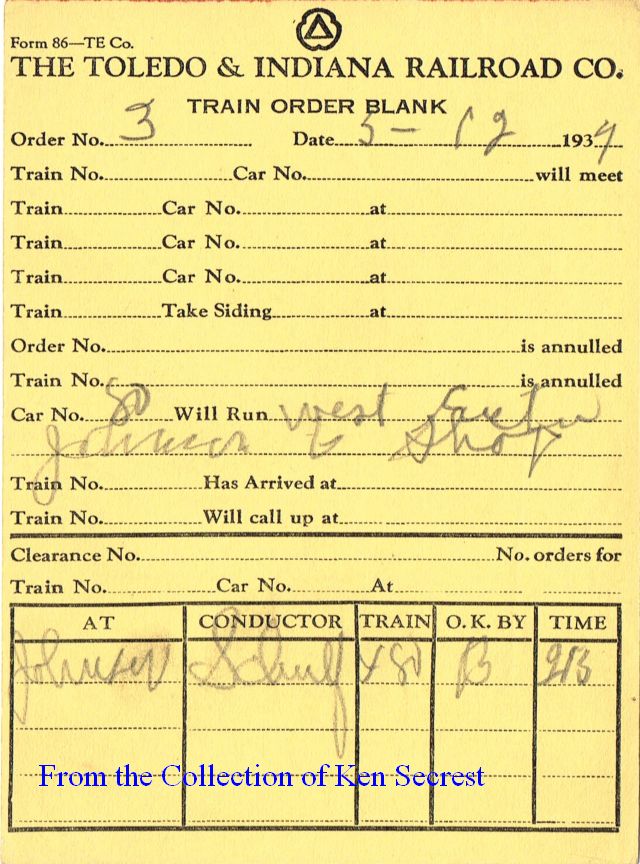 Form 86—TE Co.
THE TOLEDO & INDIANA RAILROAD CO.
TRAIN ORDER BLANK
Order No. 3 Date 5-12 1934
Train No. Car No. will meet
Train Car No. at
Train Car No. at
Train Car No. at
Train Take Siding at
Order No. is annulled
Train No. is annulled
Car No. 80 Will Run West Extra
Johnson to Shop
Train No. Has Arrived at
Train No. Will call up at
Clearance No. No. orders for
Train No. Car No. At
AT CONDUCTOR TRAIN O.K. BY TIME
Johnson x80 B
From the Collection of Ken Secrest